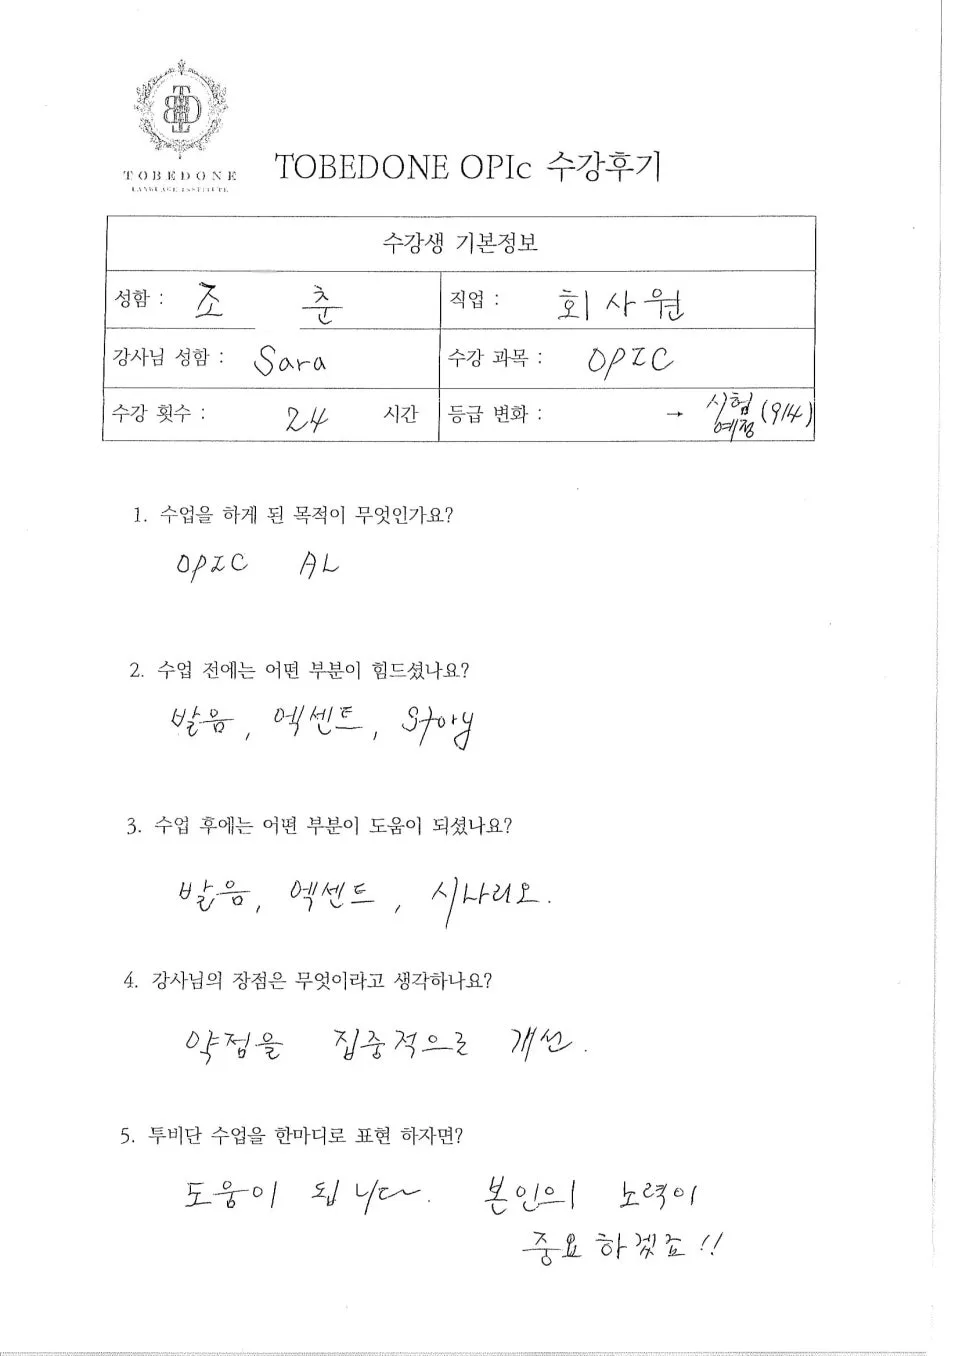 TOBEDONE
LANGUAGE INSTITUTE
TOBEDONE OPIc 수강후기
수강생 기본정보
성함 : 조 춘
직업 : 회사원
강사님 성함 : Sara
수강 과목 : OPIC
수강 횟수 : 24 시간
등급 변화 : → 시험 예정 (9/4)
1. 수업을 하게 된 목적이 무엇인가요?
OPIC AL
2. 수업 전에는 어떤 부분이 힘드셨나요?
발음, 엑센트, Story
3. 수업 후에는 어떤 부분이 도움이 되셨나요?
발음, 엑센트, 시나리오.
4. 강사님의 장점은 무엇이라고 생각하나요?
약점을 집중적으로 개선.
5. 투비단 수업을 한마디로 표현 하자면?
도움이 됩니다. 본인의 노력이
중요하겠죠!!